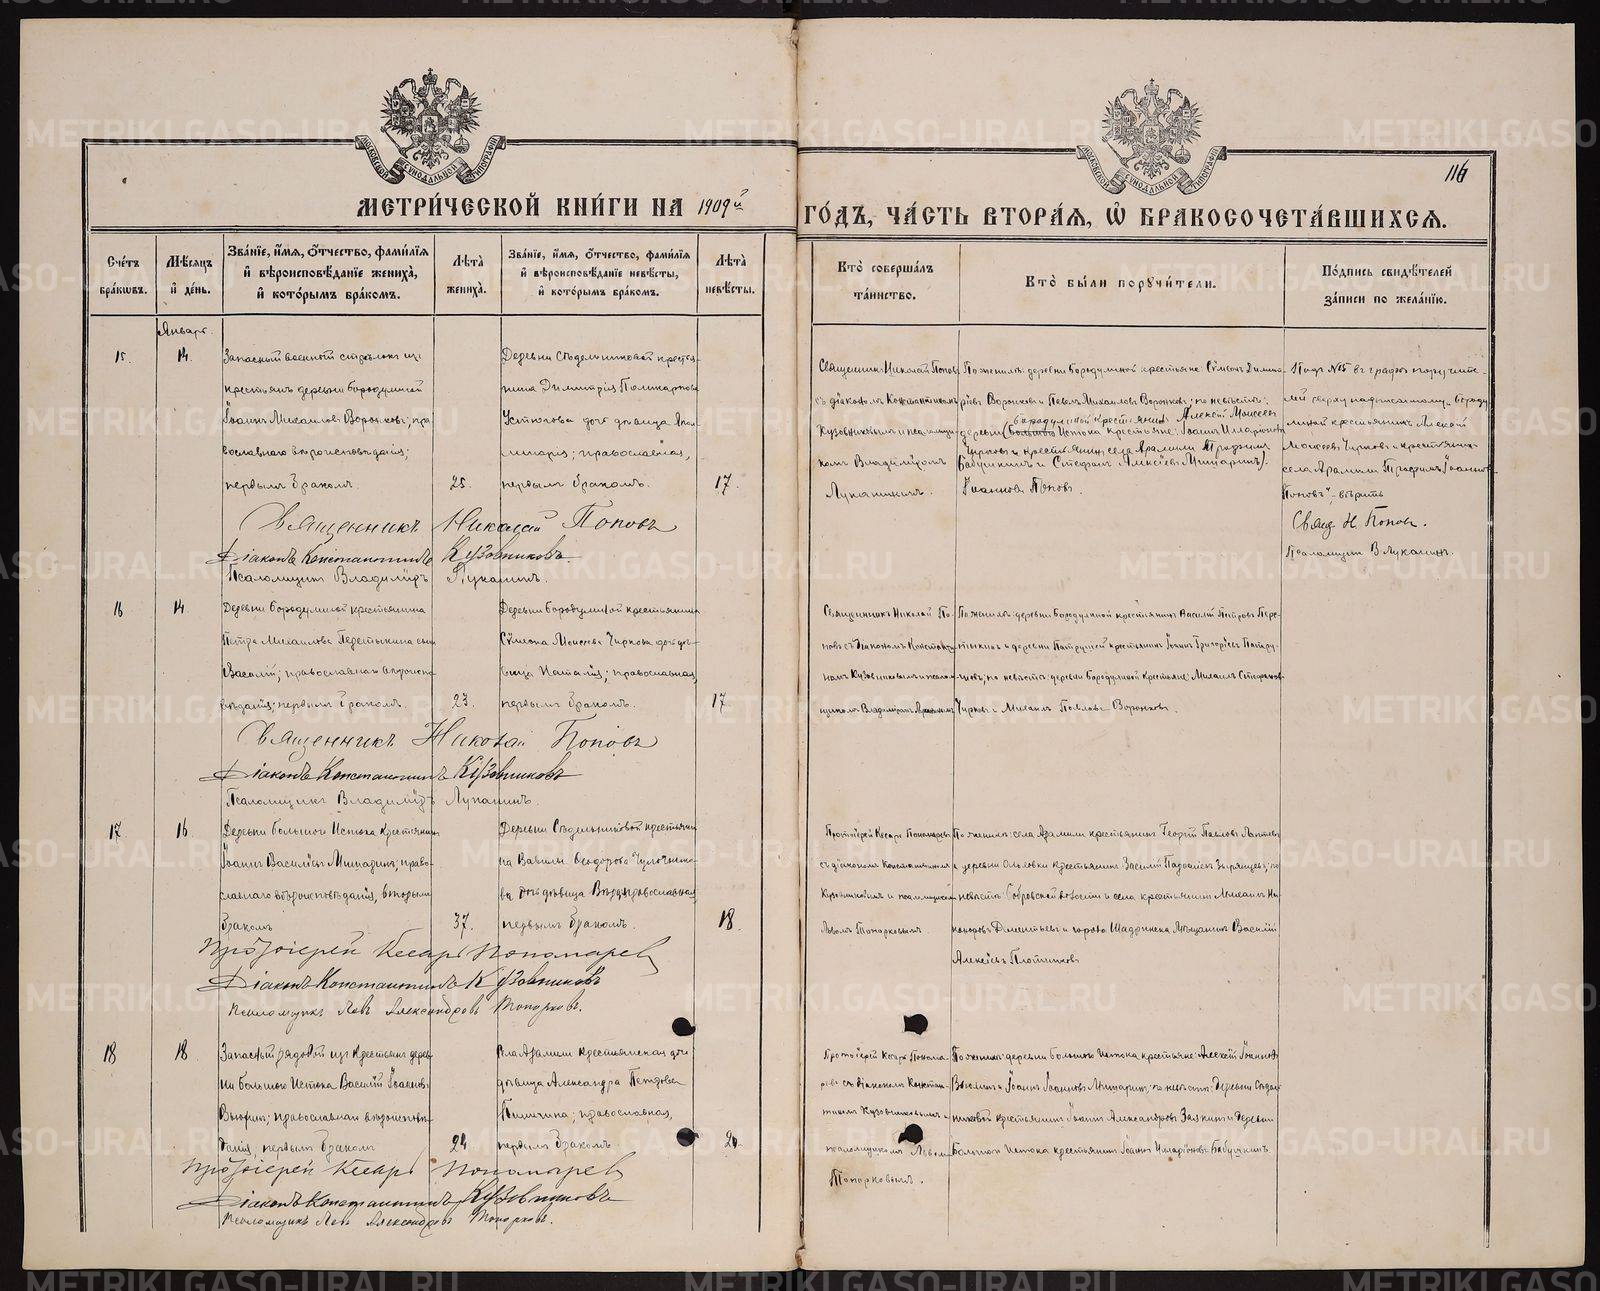 МЕТРИ́ЧЕСКОЙ КНИ́ГИ НА 1909й ГО́ДЪ, ЧА́СТЬ ВТОРА́Я, Ѡ БРАКОСОЧЕТА́ВШИХСЯ.
116
МОСКОВСКОЙ СѴНОДАЛЬНОЙ ТИПОГРАФІИ
МОСКОВСКОЙ СѴНОДАЛЬНОЙ ТИПОГРАФІИ
Сче́тъ бра́кѡвъ.
Мѣ́сяцъ и де́нь.
Зва́нїе, и́мя, о́тчество, фами́лїя и вѣроисповѣ́данїе жениха̀, и кото́рымъ бра́комъ.
Лѣ́та жениха̀.
Зва́нїе, и́мя, о́тчество, фами́лїя и вѣроисповѣ́данїе невѣ́сты, и кото́рымъ бра́комъ.
Лѣ́та невѣ́сты.
Кто̀ соверша́лъ та́инство.
Кто̀ бы́ли поручи́тели.
По́дпись свидѣ́телей за́писи по жела́нїю.
Январь.
15.
14.
Запасный военный стрѣлокъ изъ
крестьянъ деревни Бородулиной
Іоаннъ Михаиловъ Воронковъ; пра
вославнаго вѣроисповѣданія;
первымъ бракомъ.
25.
Деревни Сѣдельниковой крестья
нина Димитрія Поликарпова
Устюгова дочь дѣвица
православная,
первымъ бракомъ.
17.
Священникъ Николай Поповъ
съ діакономъ Константиномъ
Кузовниковымъ и псаломщи
комъ Владиміромъ
Лукинымъ.
По женихѣ: деревни Бородулиной крестьяне: Симеонъ Дими
тріевъ Воронковъ и Павелъ Михаиловъ Воронковъ; по невѣстѣ:
Бородулиной крестьянинъ Алексій Моисеевъ
деревни Большого Истока крестьяне: Іоаннъ Илларіоновъ
Чирковъ и крестьянинъ села Арамили Трофимъ
Бабушкинъ и Стефанъ Алексіевъ Мицаринъ.
Іоанновъ Поповъ.
№ 15 въ графѣ поручите
лей сверху надписанному „Бороду
линой крестьянинъ Алексій
Моисеевъ Чирковъ и крестьянинъ
села Арамили Трофимъ Іоанновъ
Поповъ" - вѣрить
Свящ. Н. Поповъ.
Псаломщикъ В. Лукинъ.
Священникъ Николай Поповъ
Діаконъ Константинъ Кузовниковъ.
Псаломщикъ Владиміръ Лукинъ.
16
14
Деревни Бородулиной крестьянина
Петра Михаилова Перетыкина сынъ
Василій; православнаго вѣроиспо
вѣданія; первымъ бракомъ.
23.
Деревни Бородулиной крестьянина
Симеона Моисеева Чиркова дочь дѣ
вица Наталія; православная,
первымъ бракомъ.
17.
Священникъ Николай По
повъ съ діакономъ Констант
номъ Кузовниковымъ и псалом
щикомъ Владиміромъ
По женихѣ: деревни Бородулиной крестьянинъ Василій Петровъ Пере
тыкинъ и деревни Патрушей крестьянинъ Іоаннъ Григоріевъ Патру
шевъ; по невѣстѣ: деревни Бородулиной крестьяне: Михаилъ Стефановъ
Чирковъ и Михаилъ Павловъ Воронковъ.
Священникъ Николай Поповъ
Діаконъ Константинъ Кузовниковъ
Псаломщикъ Владиміръ Лукинъ.
17
16
Деревни Большого Истока крестьянинъ
Іоаннъ Василіевъ Мицаринъ; право
славнаго вѣроисповѣданія, вторымъ
бракомъ
37.
Деревни Сѣдельниковой крестьяни
на Вавилы Ѳеодорова
ва дочь дѣвица православная
первымъ бракомъ.
18.
Протоіерей Кесарь Пономаревъ
съ діакономъ Константиномъ
Кузовниковымъ и псаломщикомъ
Львомъ Топорковымъ.
По женихѣ: села Арамили крестьянинъ Георгій Павловъ Лаптевъ
и деревни крестьянинъ Василій Зырянцевъ; по
невѣстѣ: Бобровской волости и села крестьянинъ Михаилъ Ни
каноровъ Дементьевъ и города Шадринска мѣщанинъ Василій
Алексіевъ Плотниковъ
Протоіерей Кесарь Пономаревъ
Діаконъ Константинъ Кузовниковъ
Псаломщикъ Левъ Александровъ Топорковъ.
18
18
Запасный рядовой изъ крестьянъ дерев
ни Большого Истока Василій Іоанновъ
Вьюхинъ; православнаго вѣроисповѣ
данія, первымъ бракомъ
24
Села Арамили крестьянская дочь
дѣвица Александра Петрова
православная,
первымъ бракомъ.
20.
Протоіерей Кесарь Понома
ревъ съ діакономъ Констан
тиномъ Кузовниковымъ и
псаломщикомъ Львомъ
Топорковымъ.
По женихѣ: деревни Большого Истока крестьяне: Алексій Іоанновъ
Вьюхинъ и Іоаннъ Іоанновъ Мицаринъ; по невѣстѣ: деревни Сѣдель
никовой крестьянинъ Іоаннъ Александровъ и деревни
Большого Истока крестьянинъ Іоаннъ Илларіоновъ Бабушкинъ.
Протоіерей Кесарь Пономаревъ
Діаконъ Константинъ Кузовниковъ
Псаломщикъ Левъ Александровъ Топорковъ.
METRIKI.GASO-URAL.RU